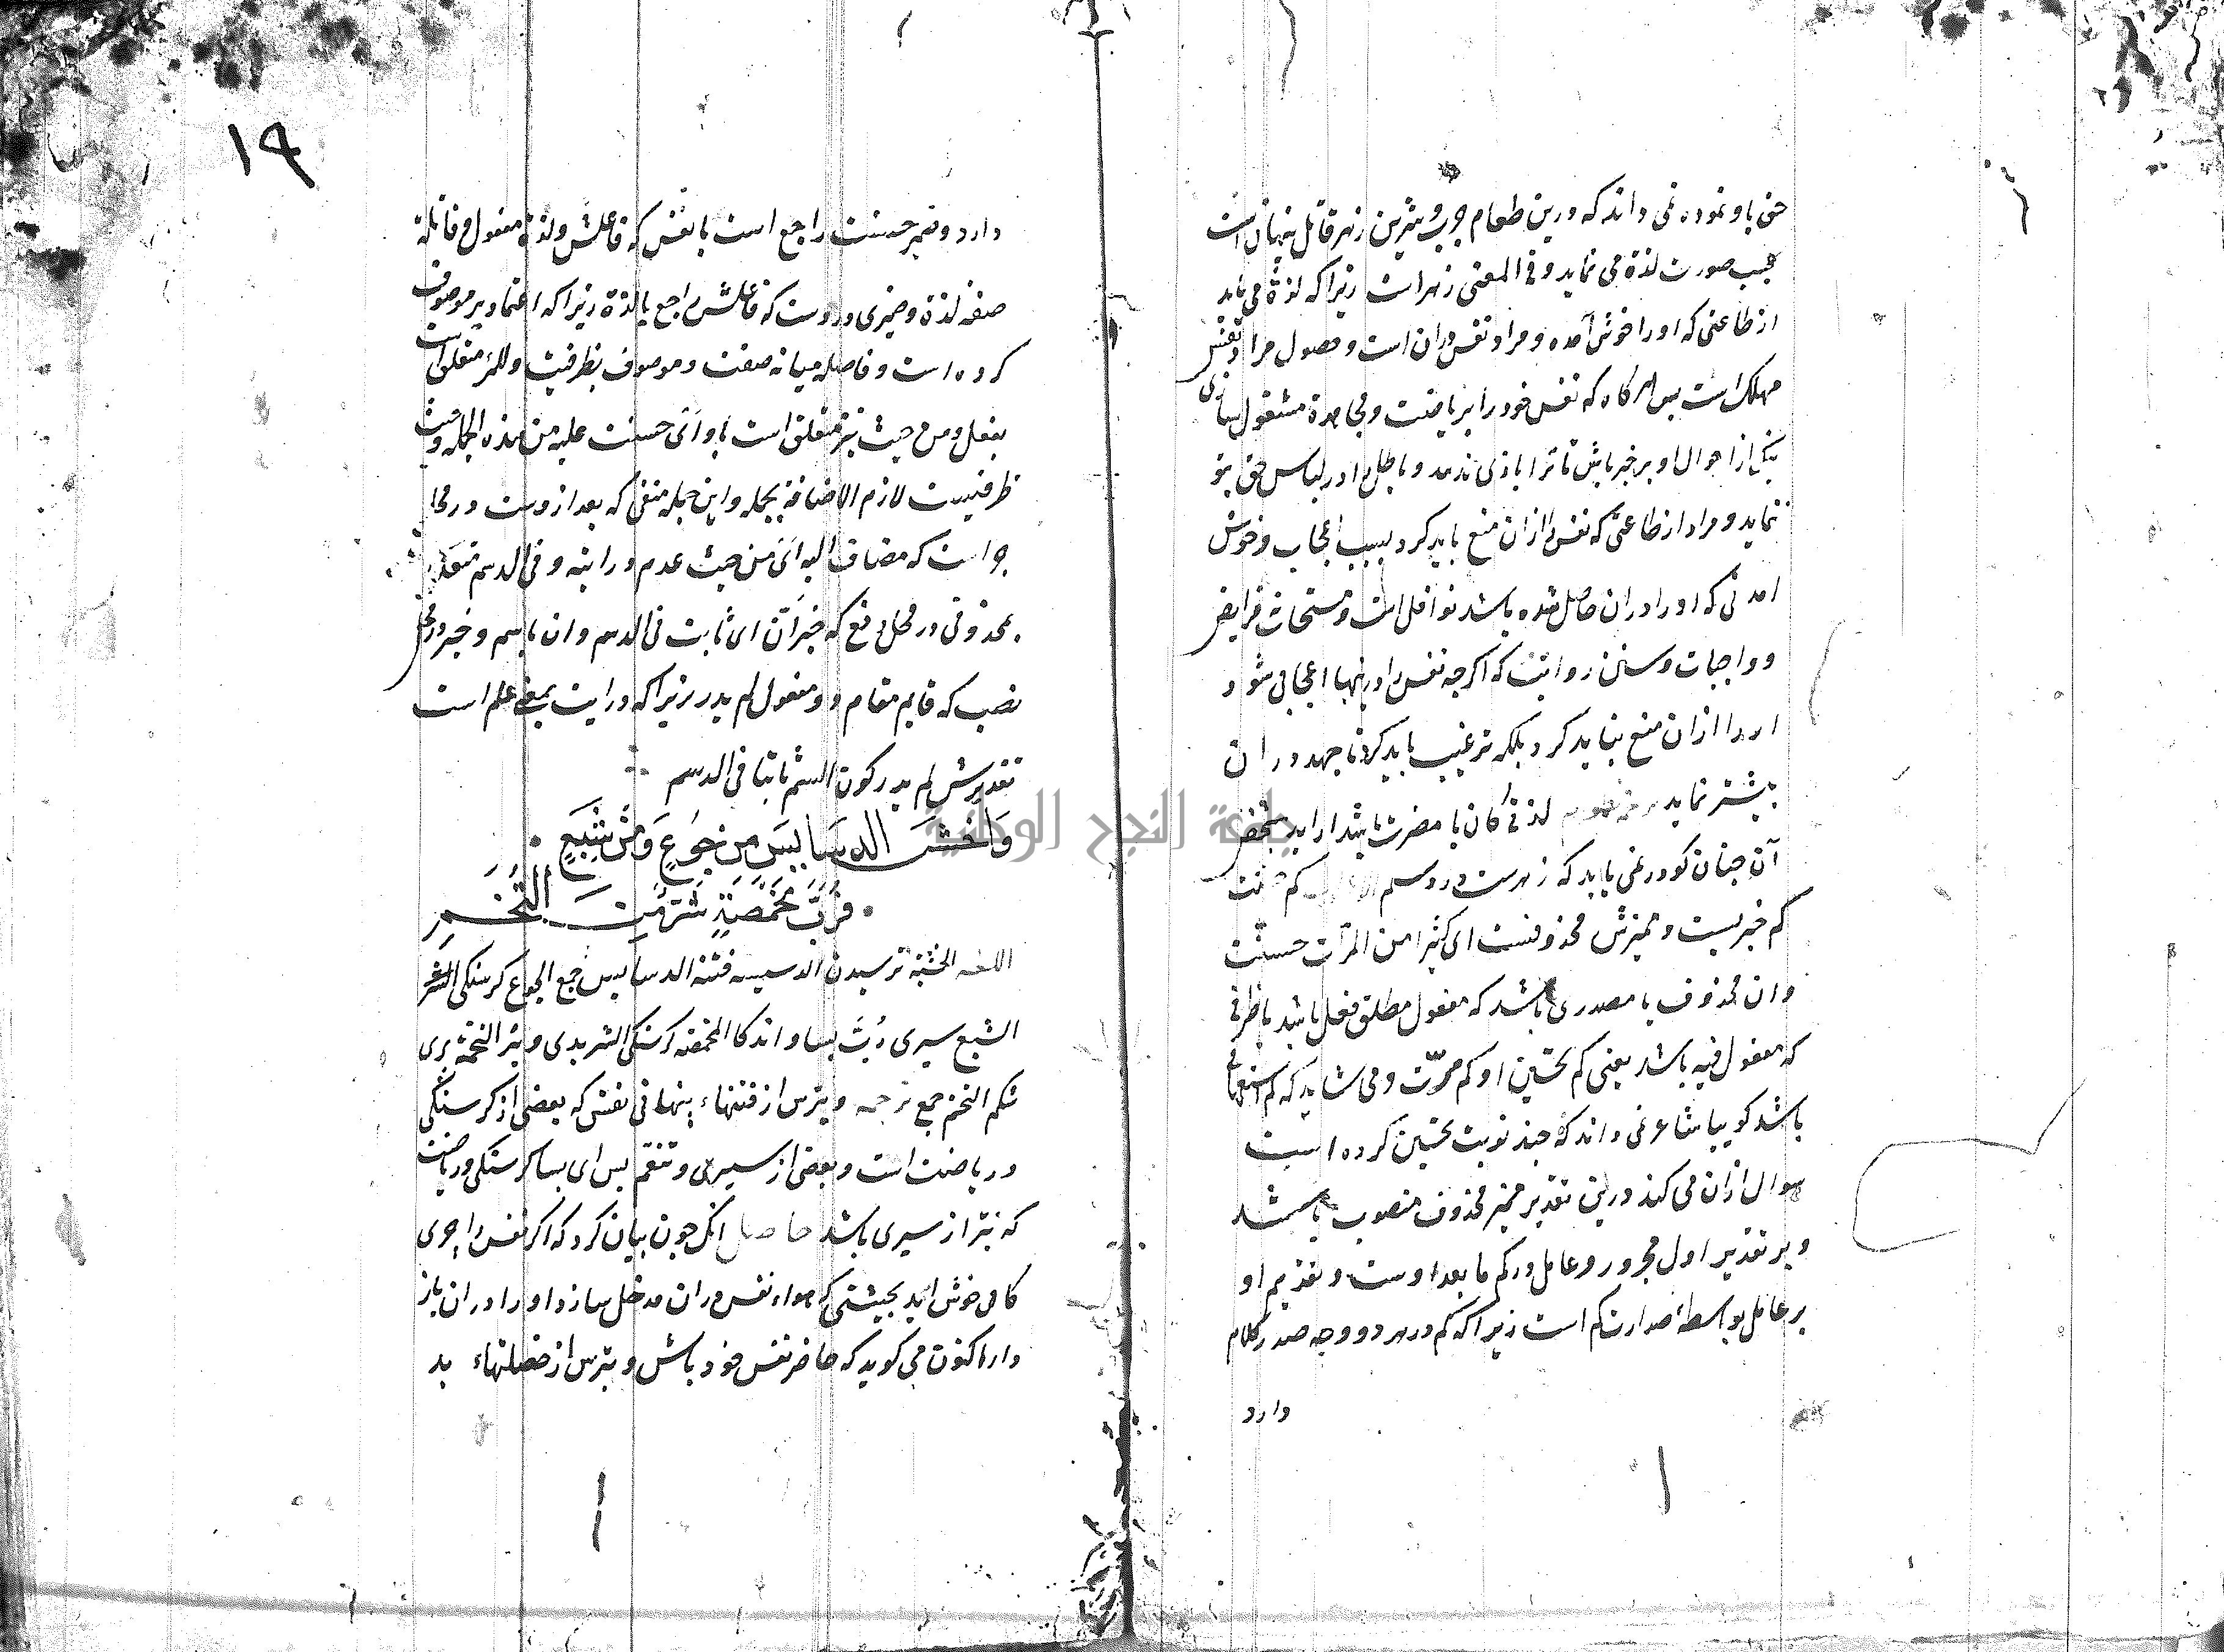 حق باو نموده نمی داند که درین طعام چرب و شیرین زهر قاتل پنهان است
بحسب صورت لذة می نماید و فی المعنی زهرات زیرا که لذة می یابد
از طاعتی که او را خوش آمده و مراد نفس دران است و حصول مراد نفس
مهلک است پس هرکاه که نفس خود را بریاضت و مجاهدة مشغول سازی
نیک از احوال او برخبر باش تا ترا بازی ندهد و باطل را در لباس حق بتو
ننماید و مراد از طاعتی که نفس را ازان منع باید کرد بسبب اعجاب و خوش
امدنی که او را دران حاصل شده باشد نوافل است و مستحبات فرایض
و واجبات و سنن رواتب که اکرچه نفس را درینها اعجابی شود
او را ازان منع نباید کرد بلکه ترغیب باید کرد تا جهد دران
بیشتر نماید لذتی کان با مضرت باشد ار اید بشخص
آن چنان کو در نمی یابد که زهرست در دسم کم حسنت
کم خبریست و ممیزش محذوفست ای کثیرا من المرات حسنت
و ان محذوف یا مصدری باشد که مفعول مطلق فعل باشد یا ظرفی
که مفعول فیه باشد یعنی کم تحسین او کم مرت و می شاید که کم استفهامی
باشد کوییا شاعر نمی داند که چند نوبت تحسین کرده است
سوال ازان می کند درین تقدیر ممیز محذوف منصوب باشد
و بر تقدیر اول مجرور و عامل در کم ما بعد اوست و تقدیم او
بر عامل بواسطۀ صدارت کم است زیرا که کم در هر دو وجه صدر کلام
دارد
۱۹
دارد و ضمیر حسنت راجع است با نفس که فاعلش و لذة مفعول و قاتلة
صفة لذة و ضمیری دروست که فاعلش راجع بالذة زیرا که اعتماد بر موصوف
کرده است و فاصله میانه صفت و موصوف بظرفیت و للمرء متعلق است
بفعل و من حیث نیز متعلق است باو ای حسنت علیه من هذه الجملة و حیث
ظرفیست لازم الاضافة بجمله و این جمله منفی که بعد ازوست در محل
جر است که مضاف الیه ای من حیث عدم درایته و فی الدسم متعلق
بمحذوفی در محل رفع که خبر ان ای ثابت فی الدسم و ان باسم و خبر در محل
نصب که قایم مقام دو مفعول لم یدر زیرا که درایت بمعنی علم است
تقدیرش لم یدر کون السم ثابتا فی الدسم
وَاخْشَ الدسَایِسَ مِن جُوعٍ وَمِنْ شِبَعٍ
فَرُبَّ مَخْمَصَةٍ شَرٌّ مِنَ التُّخَمِ
اللغه الخشیة ترسیدن الدسیسه فتنه الدسایس جمع الجوع کرسنکی الشر
الشبع سیری رُبَّ بسا و اندک المخمصة کرسنکی الشر بدی و بتر التخمة پری
شکم التخم جمع ترجمه و بترس از فتنهاء پنهانی نفس که بعضی از کرسنکی
و ریاضت است و بعضی از سیری و تنعم پس ای بسا کرسنکی و ریاضت
که بتر از سیری باشد حاصل انک چون بیان کرد که اکر نفس را چری
کامی خوش اید بحیثیتی که هواء نفس دران مدخل سازد او را دران باز
دار اکنون می کوید که حاضر نفس خود باش و بترس از خصلتهاء بد
جامعة النجاح الوطنية